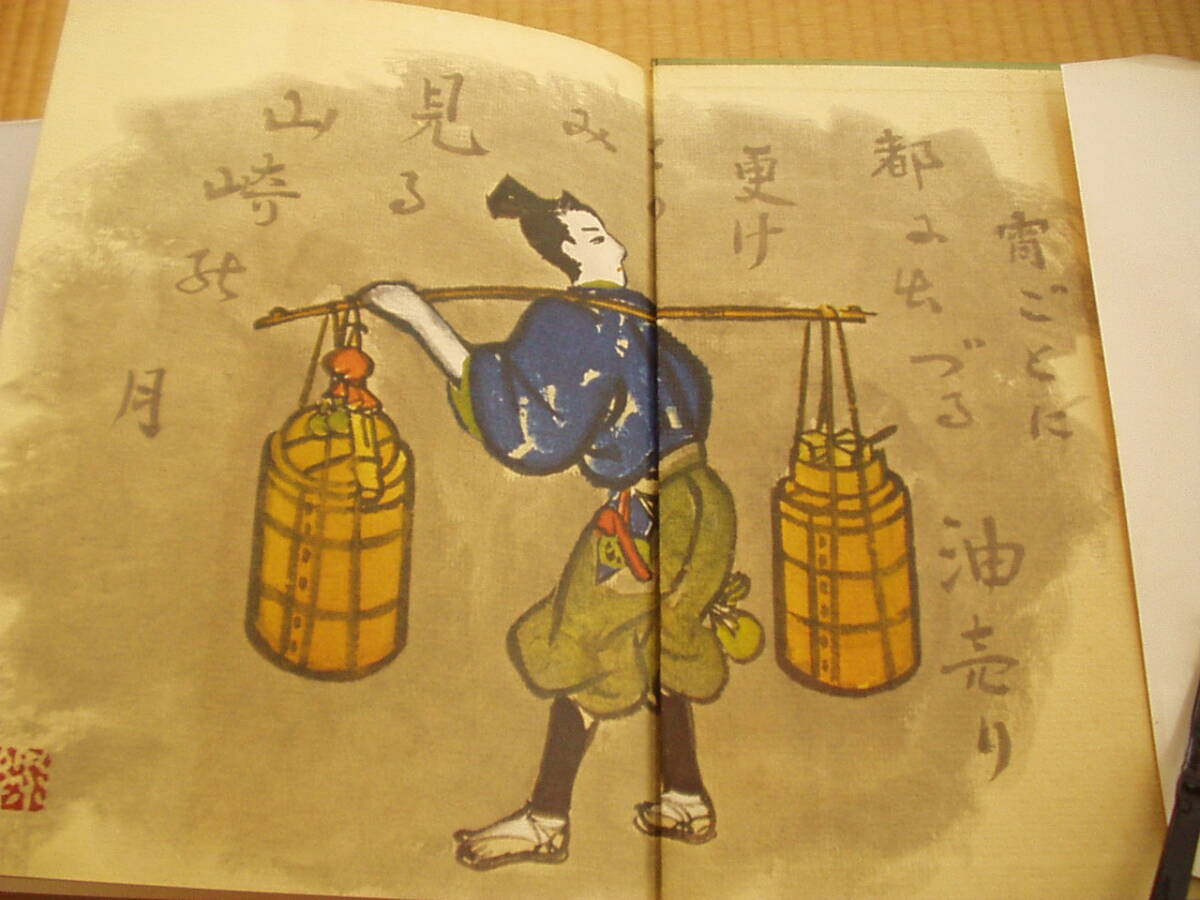 宵ごとに
都に出づる
油売り
更け
み
見る
山崎の
月